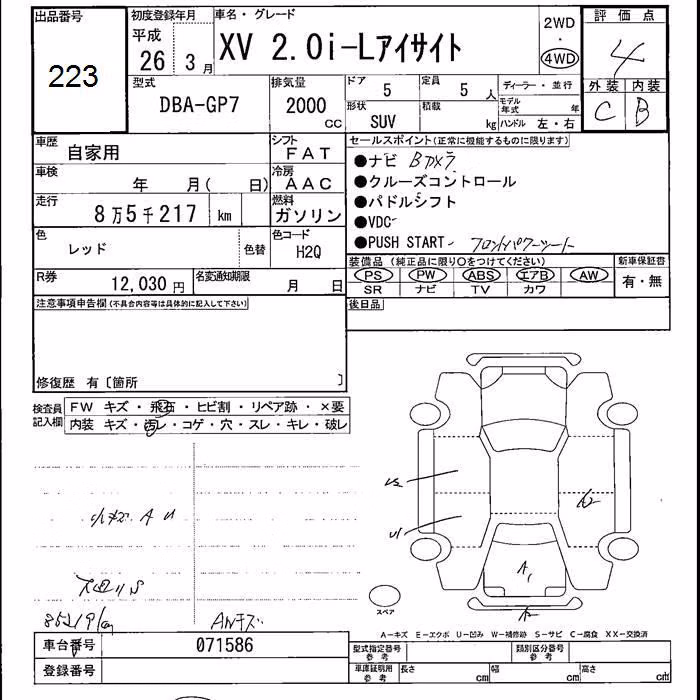 出品番号
223
初度登録年月
平成
26 3月
車名・グレード
XV 2.0i-Lアイサイト
2WD
・
4WD
評価点
4
外装 内装
C B
型式
DBA-GP7
排気量
2000
CC
ドア
5
定員
5 人
形状
SUV
積載
kg
ディーラー・並行
モデル年式 年
ハンドル 左・右
車歴
自家用
シフト
FAT
車検
年 月( 日)
冷房
AAC
走行
8万5千217 km
燃料
ガソリン
色
レッド
色替
色コード
H2Q
R券
12,030円
名変通知期限
月 日
セールスポイント(正常に機能するものに限ります)
●ナビ Bカメラ
●クルーズコントロール
●パドルシフト
●VDC
●PUSH START フロントパワーシート
装備品 (純正品に限り〇をつけてください)
PS PW ABS エアB AW
SR ナビ TV カワ
新車保証書
有・無
後日品
注意事項申告欄(不具合内容等は具体的に記入して下さい)
修復歴 有〔箇所 〕
検査員記入欄
FW キズ・飛石・ヒビ割・リペア跡・×要
内装 キズ・汚レ・コゲ・穴・スレ・キレ・破レ
小キズ A U
U2
U1
A1
下回りS
85219km
ANキズ
スペア
A―キズ E―エクボ U―凹み W―補修跡 S―サビ C―腐食 XX―交換済
車台番号
071586
登録番号
型式指定番号
参考
類別区分番号
参考
車庫証明用
参考
長さ cm
幅 cm
高さ cm